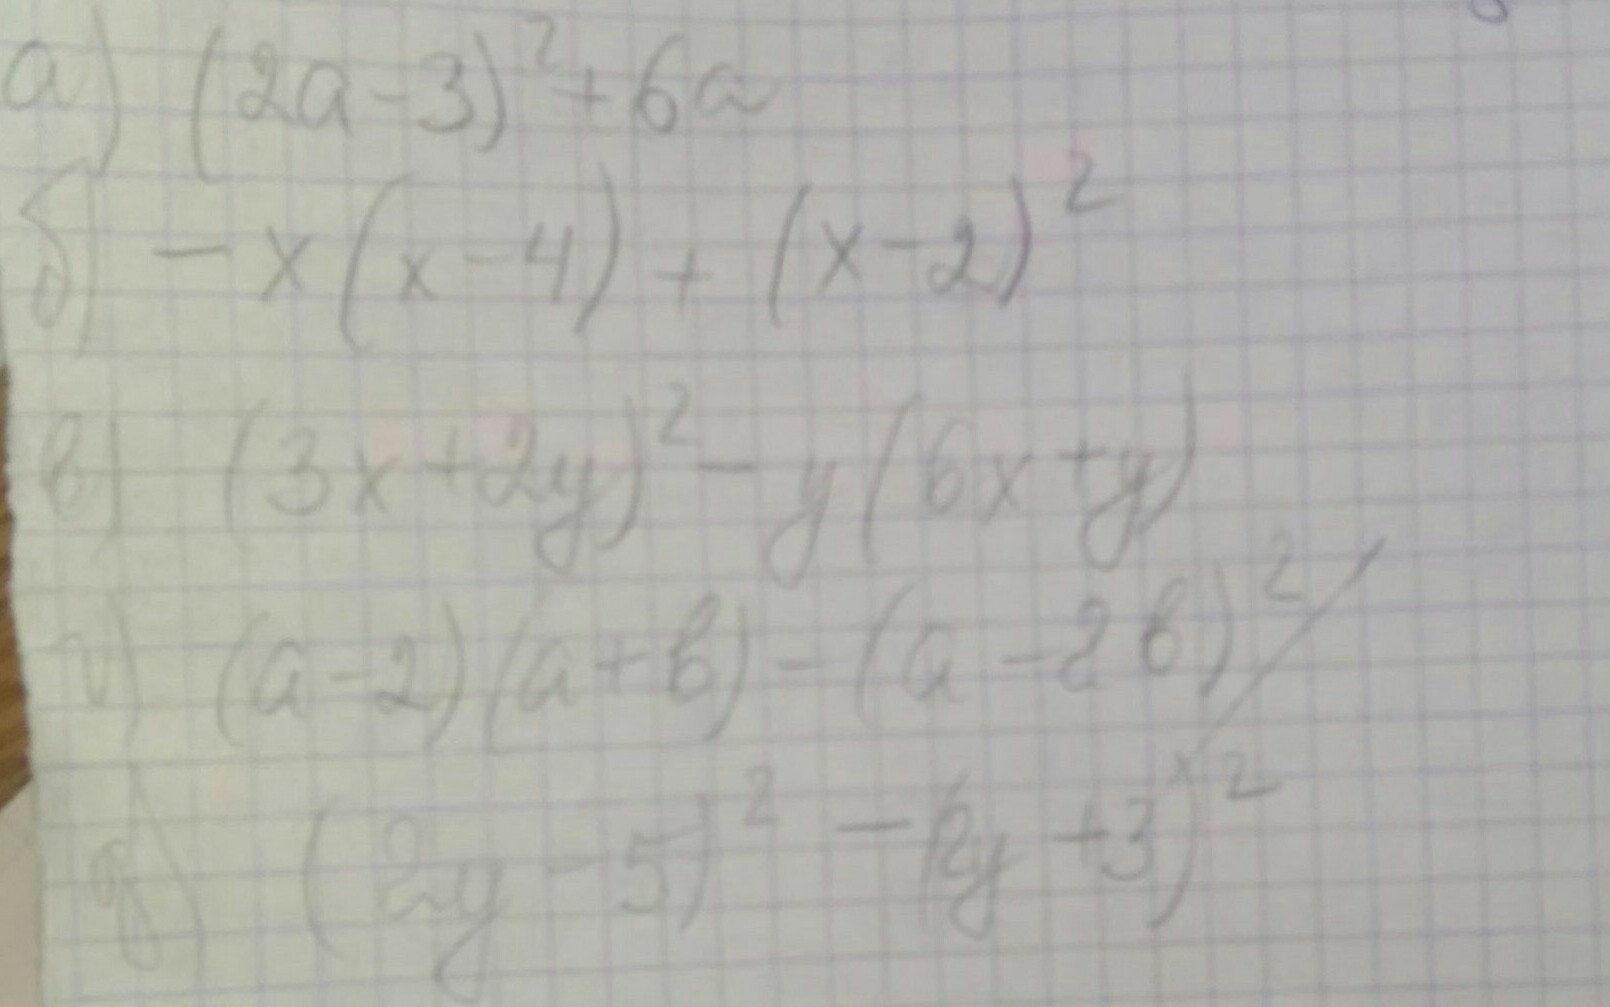 а) (2a-3)²+6a
б) -x(x-4)+(x-2)²
в) (3x+2y)²-y(6x+y)
г) (a-2)(a+b)-(a-2b)²
д) (2y-5)²-(2y+3)²